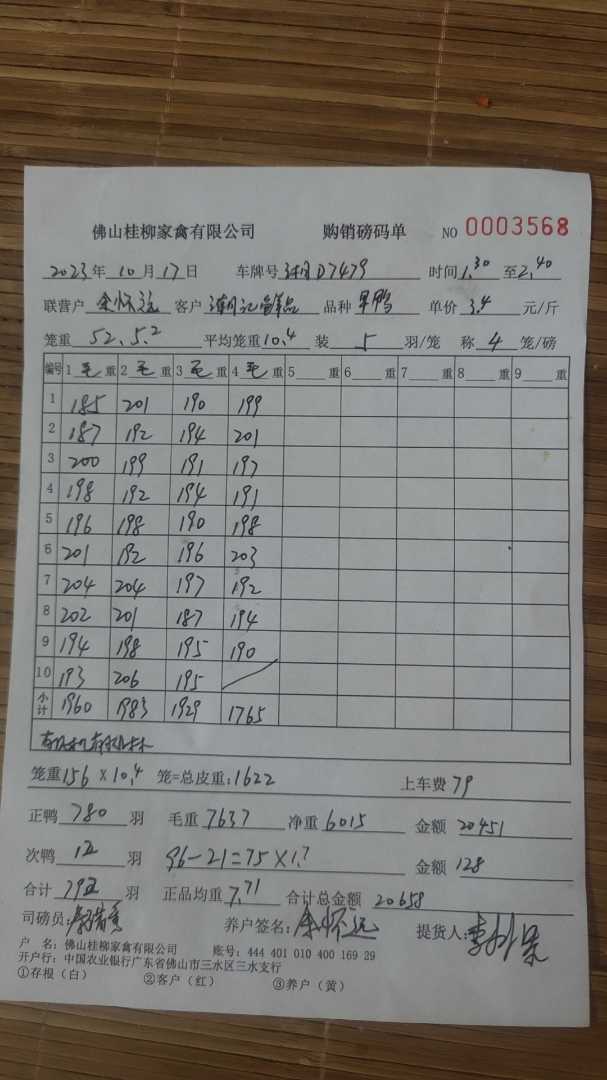 佛山桂柳家禽有限公司 购销磅码单 NO 0003568
2023年10月17日 车牌号 D7479 时间1.30至2.40
联营户 余怀远 客户 品种 单价 3.4 元/斤
笼重 52.5.2 平均笼重10.4 装 5 羽/笼 称 4 笼/磅
编号 1 毛 重 2 毛 重 3 毛 重 4 毛 重 5 重 6 重 7 重 8 重 9 重
1 185 201 190 199
2 187 192 194 201
3 200 199 191 197
4 198 192 194 191
5 196 198 190 198
6 201 192 196 203
7 204 204 197 192
8 202 201 187 194
9 194 198 195 190
10 193 206 195
小计 1960 1983 1929 1765
笼重156×10.4 笼=总皮重:1622 上车费 79
正鸭 780 羽 毛重 7637 净重 6015 金额 20451
次鸭 12 羽 96-21=75×1.7 金额 128
合计 792 羽 正品均重 7.71 合计总金额 20658
司磅员: 养户签名: 余怀远 提货人:
户 名: 佛山桂柳家禽有限公司 账号: 444 401 010 400 169 29
开户行: 中国农业银行广东省佛山市三水区三水支行
①存根（白） ②客户（红） ③养户（黄）